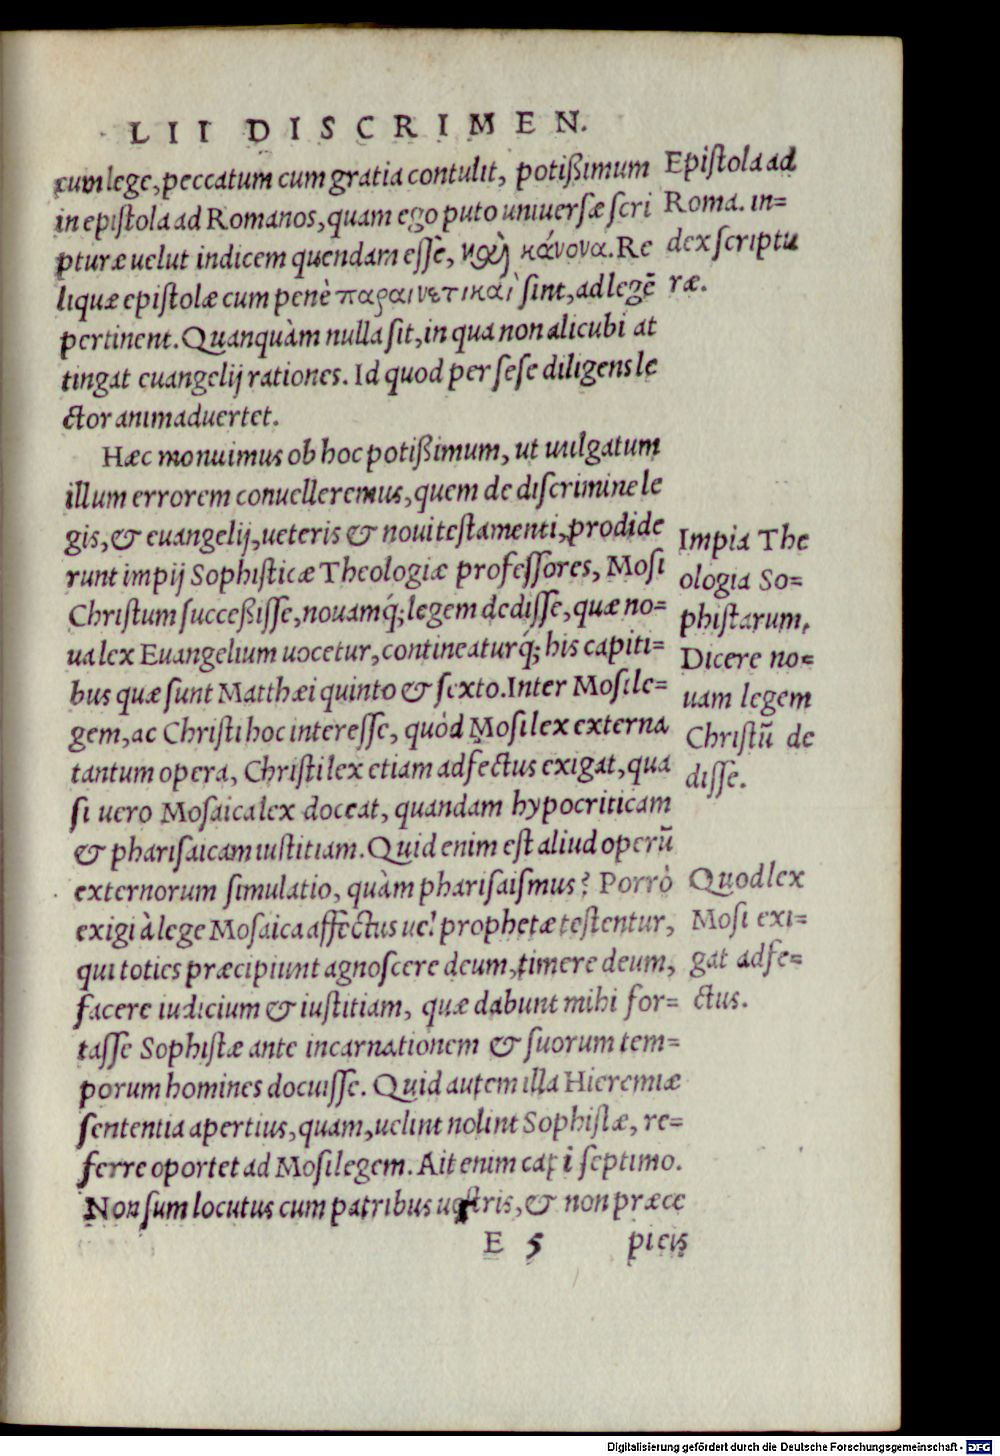 LII DISCRIMEN.
cum lege, peccatum cum gratia contulit, potißimum
in epistola ad Romanos, quam ego puto uniuersæ scri
pturæ uelut indicem quendam esse, καὶ κάνονα. Re
liquæ epistolæ cum penè παραινετικαὶ sint, ad legẽ
pertinent. Quanquàm nulla sit, in qua non alicubi at
tingat euangelij rationes. Id quod per sese diligens le
ctor animaduertet.
Hæc monuimus ob hoc potißimum, ut uulgatum
illum errorem conuelleremus, quem de discrimine le
gis, & euangelij, ueteris & noui testamenti, prodide
runt impij Sophisticæ Theologiæ professores, Mosi
Christum succeßisse, nouamq́; legem dedisse, quæ no=
ua lex Euangelium uocetur, contineaturq́; his capiti=
bus quæ sunt Matthæi quinto & sexto. Inter Mosi le=
gem, ac Christi hoc interesse, quòd Mosi lex externa
tantum opera, Christi lex etiam adfectus exigat, qua
si uero Mosaica lex doceat, quandam hypocriticam
& pharisaicam iustitiam. Quid enim est aliud operũ
externorum simulatio, quàm pharisaismus? Porrò
exigi à lege Mosaica affectus uel prophetæ testentur,
qui toties præcipiunt agnoscere deum, timere deum,
facere iudicium & iustitiam, quæ dabunt mihi for=
tasse Sophistæ ante incarnationem & suorum tem=
porum homines docuisse. Quid autem illa Hieremiæ
sententia apertius, quam, uelint nolint Sophistæ, re=
ferre oportet ad Mosi legem. Ait enim capi septimo.
Non sum locutus cum patribus uestris, & non præce
E 5 picis
Epistola ad
Roma. in=
dex scriptu
ræ.
Impia The
ologia So=
phistarum,
Dicere no=
uam legem
Christũ de
disse.
Quod lex
Mosi exi=
gat adfe=
ctus.
Digitalisierung gefördert durch die Deutsche Forschungsgemeinschaft - DFG